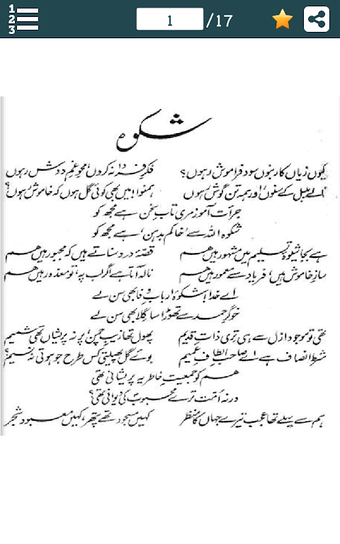 1 2 3
1 /17
شکوہ
کیوں زیاں کار بنوں سود فراموش رہوں؟ فکرِ فردا نہ کروں محوِ غمِ دوش رہوں
نالے بلبل کے سنوں اور ہمہ تن گوش رہوں ہمنوا میں بھی کوئی گل ہوں کہ خاموش رہوں؟
جرأت آموز مری تابِ سخن ہے مجھ کو
شکوہ اللہ سے 'خاکم بدہن' ہے مجھ کو
ہے بجا شیوۂ تسلیم میں مشہور ہیں ہم قصۂ درد سناتے ہیں کہ مجبور ہیں ہم
سازِ خاموش ہیں فریاد سے معمور ہیں ہم نالہ آتا ہے اگر لب پہ تو معذور ہیں ہم
اے خدا شکوۂ اربابِ وفا بھی سن لے
خوگرِ حمد سے تھوڑا سا گلا بھی سن لے
تھی تو موجود ازل سے ہی تری ذاتِ قدیم پھول تھا زیبِ چمن پر نہ پریشاں تھی شمیم
شرطِ انصاف ہے اے صاحبِ الطافِ عمیم بوئے گل پھیلتی کس طرح جو ہوتی نہ نسیم؟
ہم کو جمعیتِ خاطر یہ پریشانی تھی
ورنہ امت ترے محبوب کی دیوانی تھی؟
ہم سے پہلے تھا عجب تیرے جہاں کا منظر کہیں مسجود تھے پتھر، کہیں معبود شجر